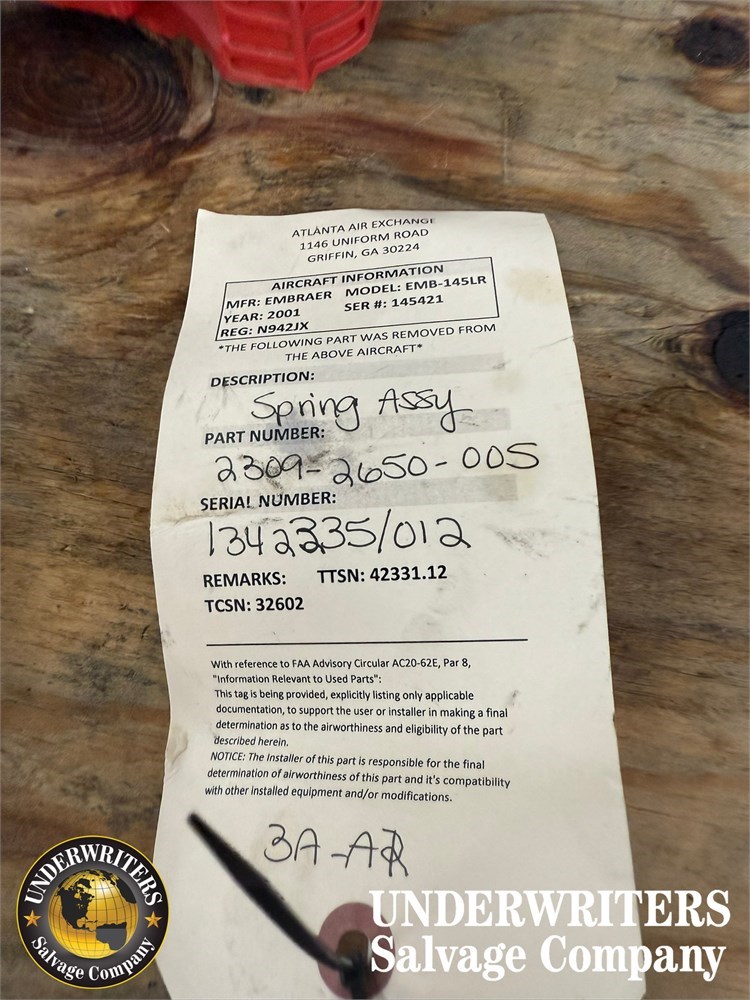 ATLANTA AIR EXCHANGE
1146 UNIFORM ROAD
GRIFFIN, GA 30224
AIRCRAFT INFORMATION
MFR: EMBRAER MODEL: EMB-145LR
YEAR: 2001 SER #: 145421
REG: N942JX
*THE FOLLOWING PART WAS REMOVED FROM
THE ABOVE AIRCRAFT*
DESCRIPTION:
Spring Assy
PART NUMBER:
2309-2650-005
SERIAL NUMBER:
1342335/012
REMARKS: TTSN: 42331.12
TCSN: 32602
With reference to FAA Advisory Circular AC20-62E, Par 8,
"Information Relevant to Used Parts":
This tag is being provided, explicitly listing only applicable
documentation, to support the user or installer in making a final
determination as to the airworthiness and eligibility of the part
described herein.
NOTICE: The Installer of this part is responsible for the final
determination of airworthiness of this part and it's compatibility
with other installed equipment and/or modifications.
3A-AR
UNDERWRITERS
Salvage Company
UNDERWRITERS
Salvage Company